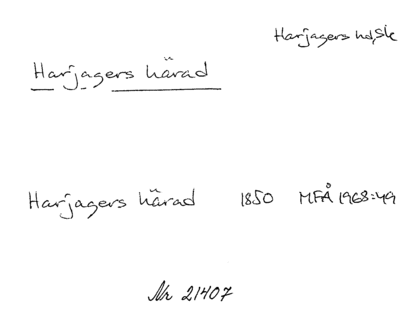 Harjagers hd, Sk
Harjagers härad
Harjagers härad 1850 MFÅ 1968:49
Nr 21407